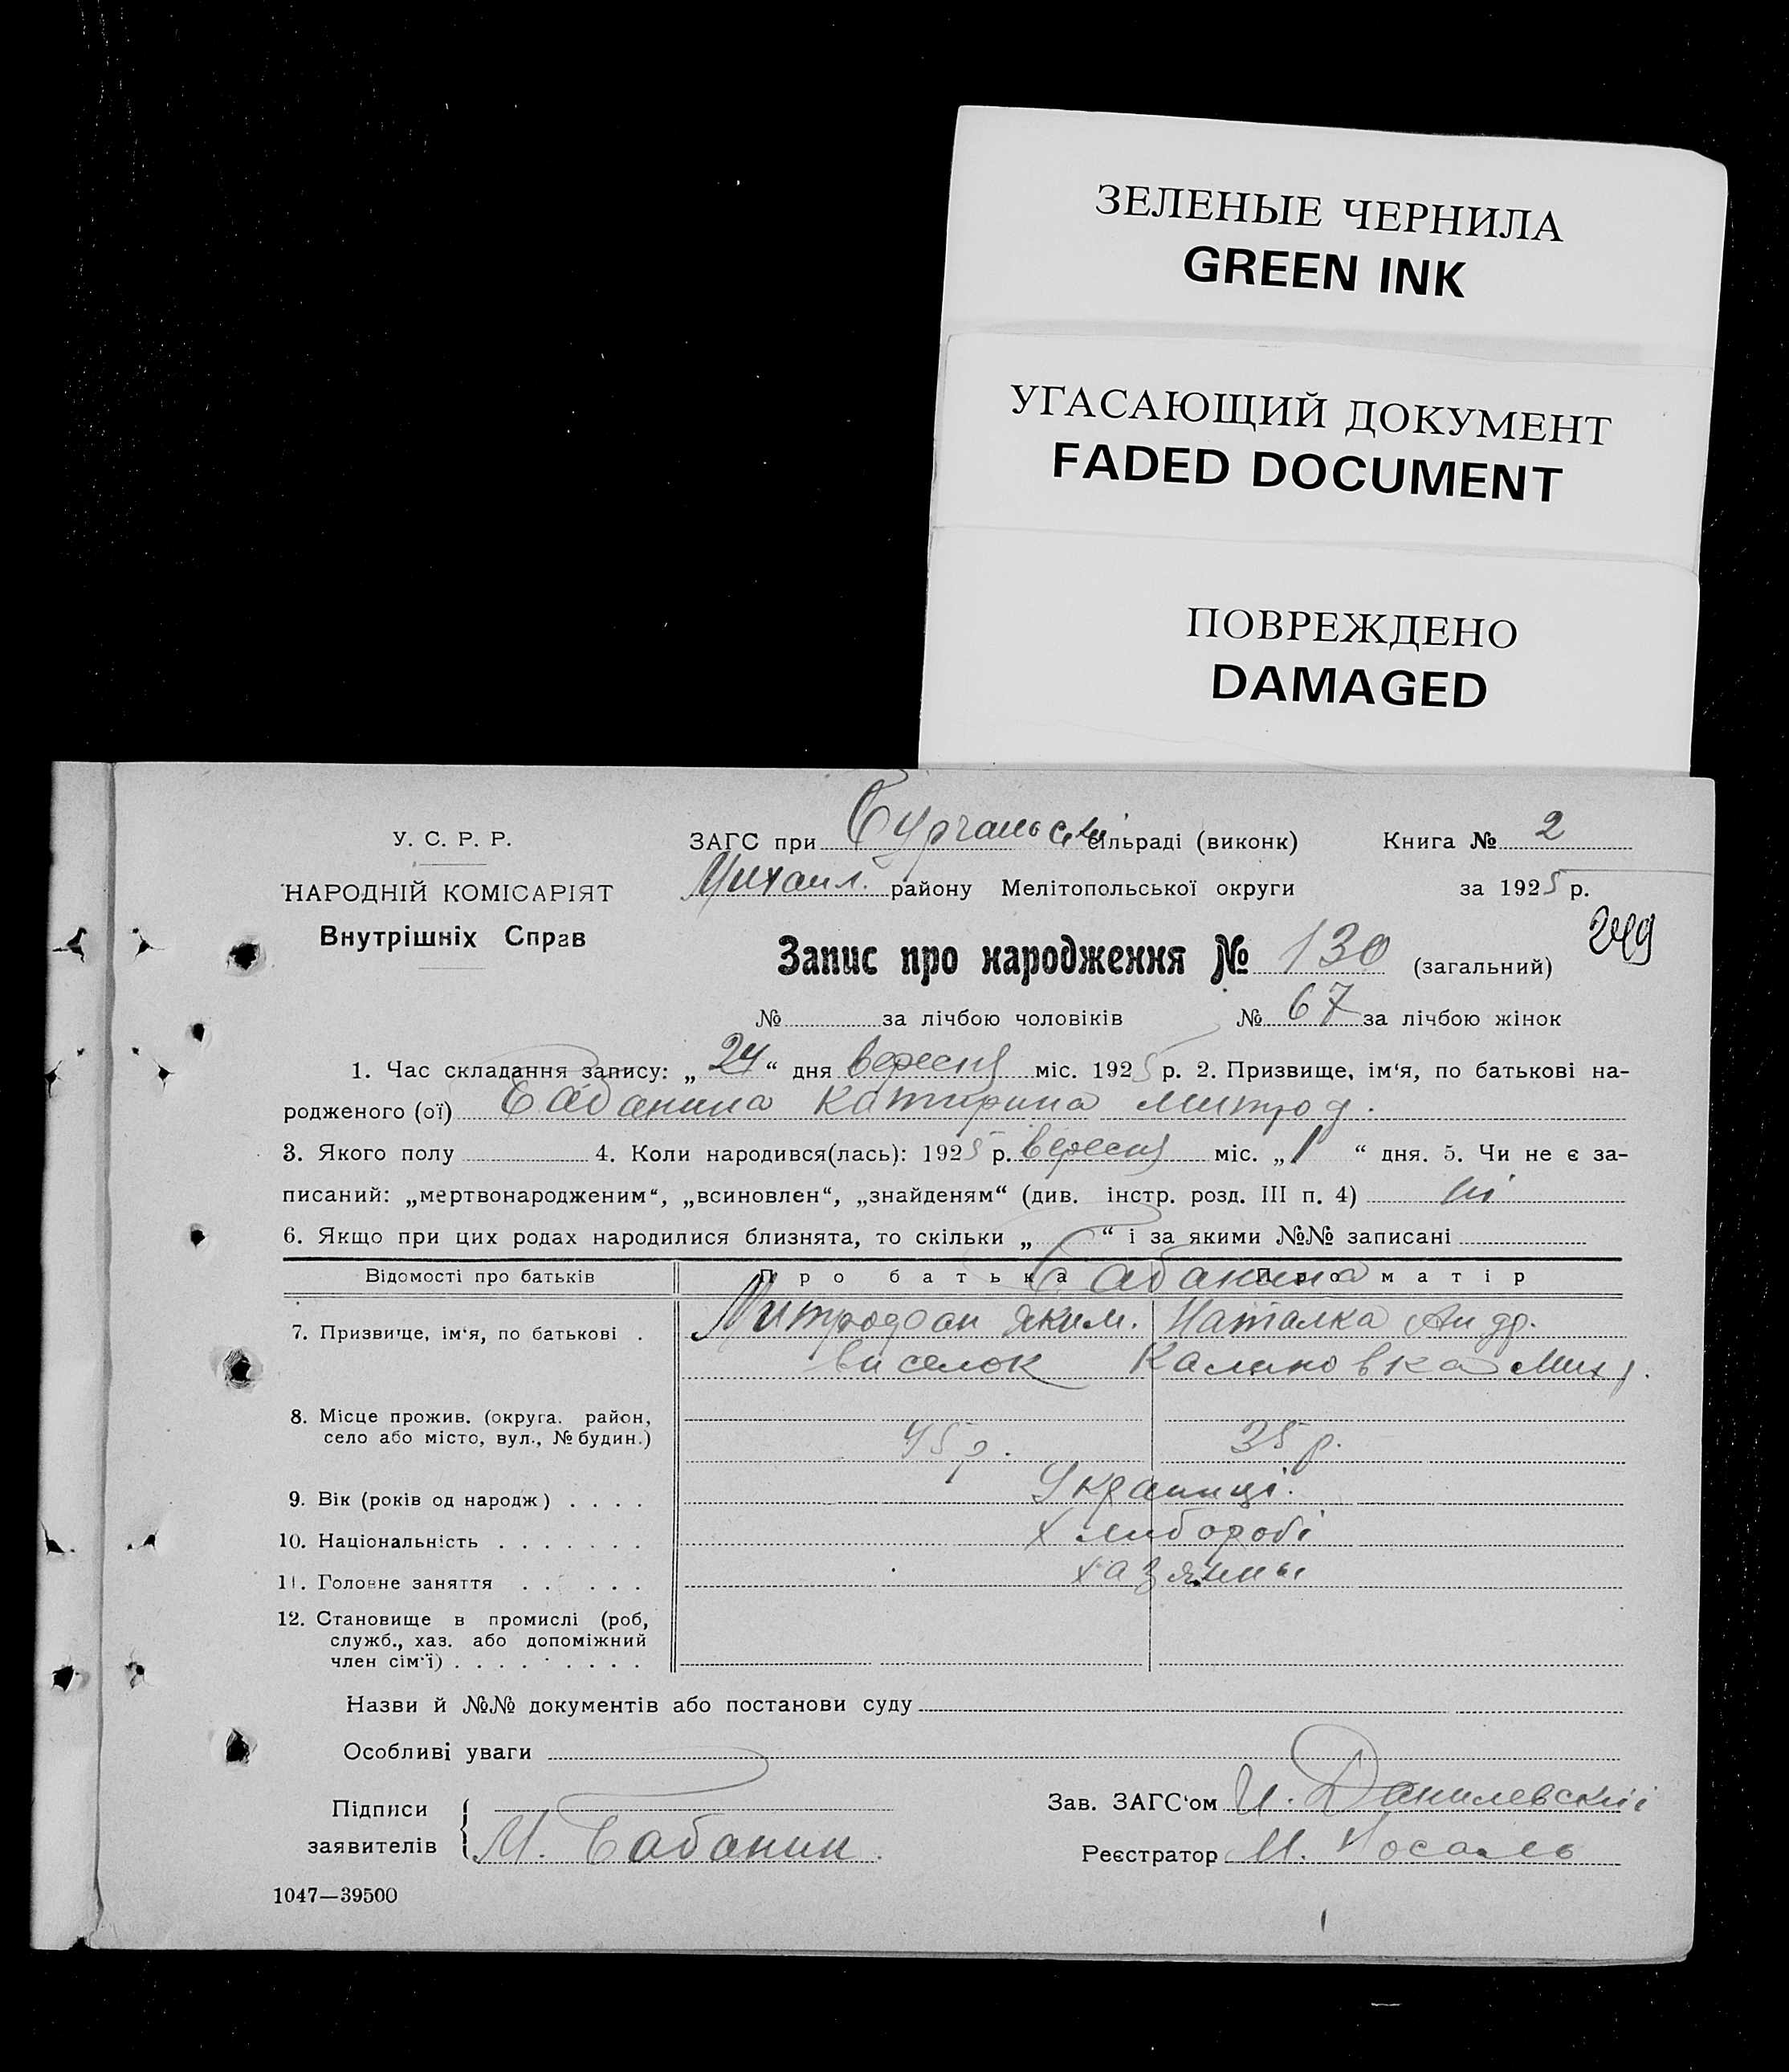 ЗЕЛЕНЫЕ ЧЕРНИЛА
GREEN INK
УГАСАЮЩИЙ ДОКУМЕНТ
FADED DOCUMENT
ПОВРЕЖДЕНО
DAMAGED
У. С. Р. Р.
НАРОДНІЙ КОМІСАРІЯТ
Внутрішніх Справ
ЗАГС при сільраді (виконк) Книга № 2
Михайл. району Мелітопольської округи за 1925 р.
249
Запис про народження № 130 (загальний)
№ за лічбою чоловіків № 67 за лічбою жінок
1. Час складання запису: „24“ дня вересня міс. 1925 р. 2. Призвище, ім‘я, по батькові на-
родженого (ої) Бабанина Катирина Митрод.
3. Якого полу 4. Коли народився(лась): 1925 р. вересня міс. „1“ дня. 5. Чи не є за-
писаний: „мертвонародженим“, „всиновлен“, „знайденям“ (див. інстр. розд. III п. 4) ні
6. Якщо при цих родах народилися близнята, то скільки „ “ і за якими №№ записані
Відомості про батьків Про батька Про матір
Бабанина
7. Призвище, ім‘я, по батькові . Митродоан Яким. Наталка Андр.
виселок Калиновка Мих р.
8. Місце прожив. (округа. район,
село або місто, вул., № будин.)
45 р. 35 р.
9. Вік (років од народж) . . . . Украинці.
10. Національність . . . . . . . хлиборобі
11. Головне заняття . . . . . . хазяины
12. Становище в промислі (роб,
служб., хаз. або допоміжний
член сім‘ї) . . . . . . . . .
Назви й №№ документів або постанови суду
Особливі уваги
Підписи
заявителів М. Бабанин.
Зав. ЗАГС‘ом И. Данилевский
Реєстратор И. Носаль
1047—39500